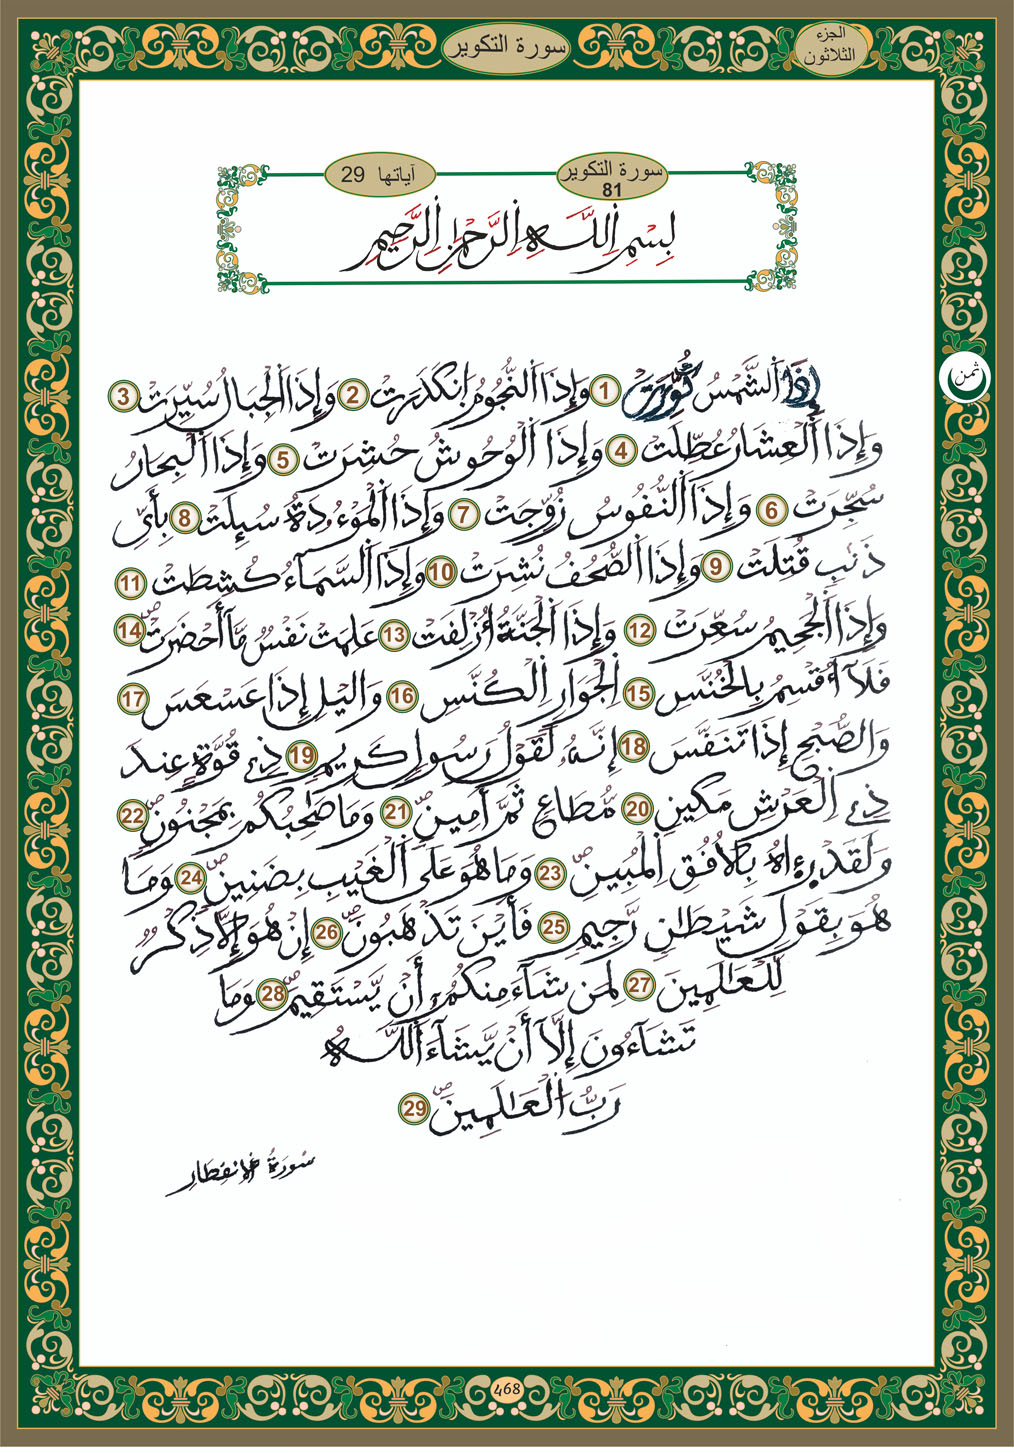 الجزء
الثلاثون
سورة التكوير
سورة التكوير
81
آياتها 29
بِسْمِ اِللَّهِ اِلرَّحْمَٰنِ اِلرَّحِيمِ
ثمن
إِذَا اَلشَّمْسُ كُوِّرَتْ 1 وَإِذَا اَلنُّجُومُ اُنكَدَرَتْ 2 وَإِذَا اَلْجِبَالُ سُيِّرَتْ 3
وَإِذَا اَلْعِشَارُ عُطِّلَتْ 4 وَإِذَا اَلْوُحُوشُ حُشِرَتْ 5 وَإِذَا اَلْبِحَارُ
سُجِّرَتْ 6 وَإِذَا اَلنُّفُوسُ زُوِّجَتْ 7 وَإِذَا اَلْمَوْءُدَةُ سُئِلَتْ 8 بِأَيِّ
ذَنۢبٍ قُتِلَتْ 9 وَإِذَا اَلصُّحُفُ نُشِرَتْ 10 وَإِذَا اَلسَّمَآءُ كُشِطَتْ 11
وَإِذَا اَلْجَحِيمُ سُعِّرَتْ 12 وَإِذَا اَلْجَنَّةُ أُزْلِفَتْ 13 عَلِمَتْ نَفْسٌ مَّآ أَحْضَرَتْ صٓ 14
فَلَآ أُقْسِمُ بِالْخُنَّسِ 15 اِلْجَوَارِ اِلْكُنَّسِ 16 وَاليْلِ إِذَا عَسْعَسَ 17
وَالصُّبْحِ إِذَا تَنَفَّسَ 18 إِنَّهُۥ لَقَوْلُ رَسُولٍ كَرِيمٍ 19 ذِے قُوَّةٍ عِندَ
ذِے اِلْعَرْشِ مَكِينٍ 20 مُّطَاعٍ ثَمَّ أَمِينٍ صٓ 21 وَمَا صَٰحِبُكُم بِمَجْنُونٍ صٓ 22
وَلَقَدْ رِءَاهُ بِالْأُفُقِ اِلْمُبِينِ صٓ 23 وَمَا هُوَ عَلَى اَلْغَيْبِ بِضَنِينٍ صٓ 24 وَمَا
هُوَ بِقَوْلِ شَيْطَٰنٍ رَّجِيمٍ 25 فَأَيْنَ تَذْهَبُونَ صٓ 26 إِنْ هُوَ إِلَّا ذِكْرٌ
لِّلْعَٰلَمِينَ 27 لِمَن شَآءَ مِنكُمُۥٓ أَنْ يَّسْتَقِيمَ صٓ 28 وَمَا
تَشَآءُونَ إِلَّآ أَنْ يَّشَآءَ اَللَّهُ
رَبُّ اُلْعَٰلَمِينَ صٓ 29
سورة الانفطار
468